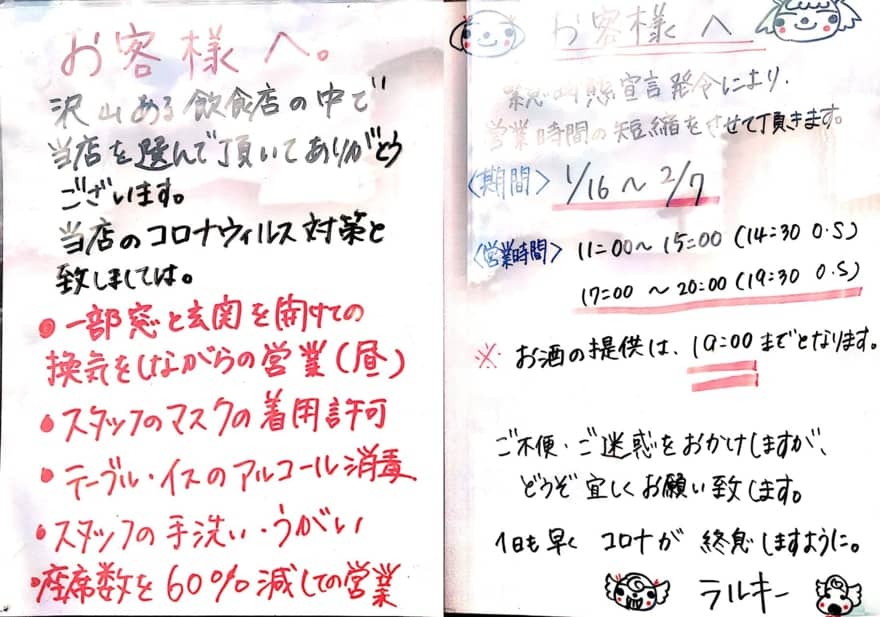 お客様へ。
沢山ある飲食店の中で
当店を選んで頂いてありがとう
ございます。
当店のコロナウィルス対策と
致しましては。
●一部窓と玄関を開けての
換気をしながらの営業(昼)
●スタッフのマスクの着用許可
●テーブル・イスのアルコール消毒
●スタッフの手洗い・うがい
●座席数を60%減しての営業
お客様へ
緊急事態宣言発令により、
営業時間の短縮をさせて頂きます。
<期間> 1/16~2/7
<営業時間> 11:00~15:00(14:30 O.S)
17:00~20:00(19:30 O.S)
※お酒の提供は、19:00までとなります。
ご不便・ご迷惑をおかけしますが、
どうぞ宜しくお願い致します。
1日も早くコロナが終息しますように。
ラルキー